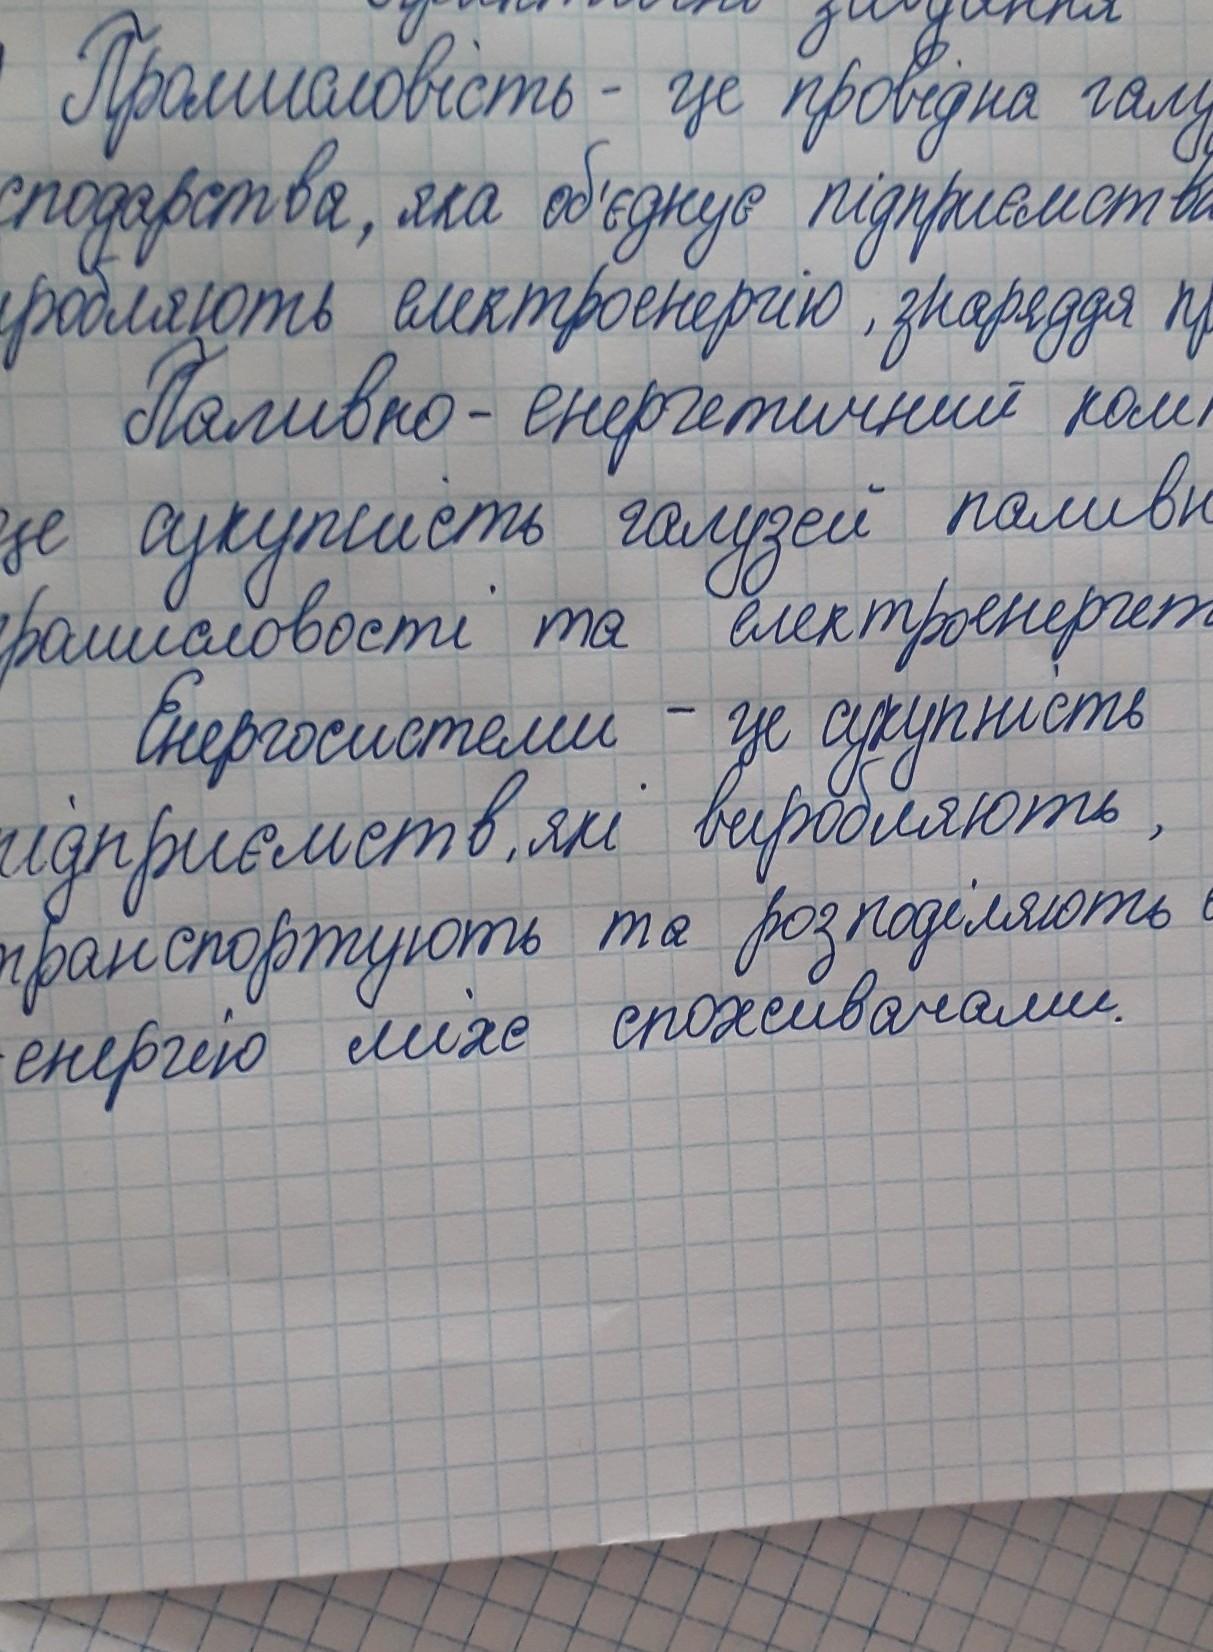 завдання
Промисловість - це провідна галу
сподарства, яка об'єднує підприємства
иробляють електроенергію, знаряддя пр
Паливно - енергетичний комп
це сукупність галузей паливн
промисловості та електроенергет
Енергосистеми - це сукупність
підприємств, які виробляють,
транспортують та розподіляють е
-енергію між споживачами.